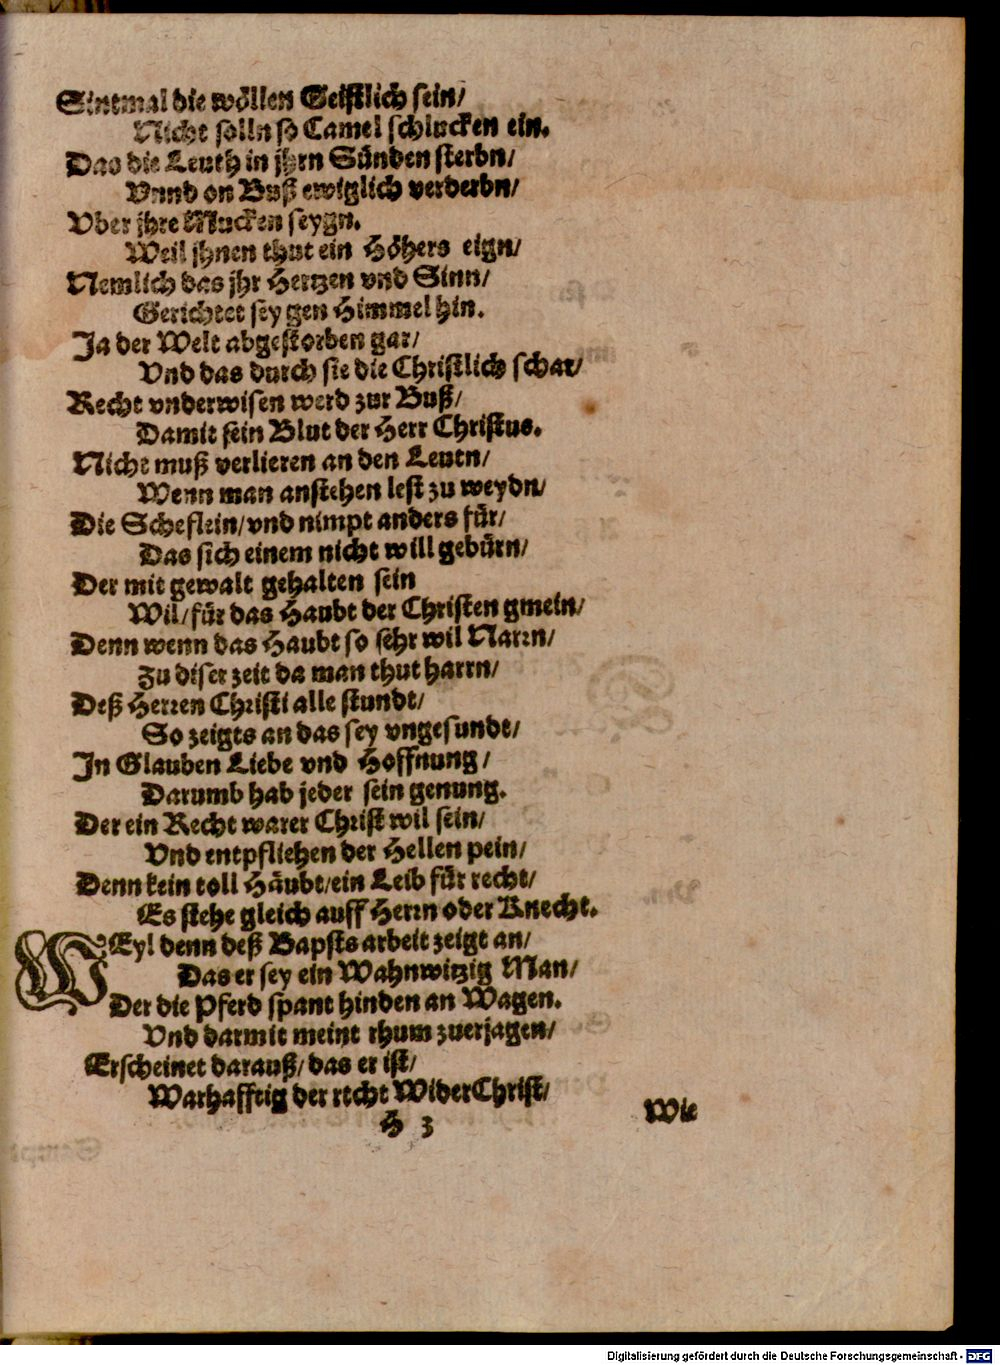 Sintmal die wöllen Geistlich sein/
Nicht solln so Camel schlucken ein.
Das die Leuth in jhrn Sünden sterbn/
Vnnd on Buß ewiglich verderbn/
Vber jhre Mucken seygn.
Weil jhnen thut ein Höhers eign/
Nemlich das jhr Hertzen vnd Sinn/
Gerichtet sey gen Himmel hin.
Ja der Welt abgestorben gar/
Vnd das durch sie die Christlich schar/
Recht vnderwisen werd zur Buß/
Damit sein Blut der Herr Christus.
Nicht muß verlieren an den Leutn/
Wenn man anstehen lest zu weydn/
Die Scheflein/vnd nimpt anders für/
Das sich einem nicht will gebürn/
Der mit gewalt gehalten sein
Wil/für das Haubt der Christen gmein/
Denn wenn das Haubt so sehr wil Narrn/
Zu diser zeit da man thut harrn/
Deß Herren Christi alle stundt/
So zeigts an das sey vngesundt/
In Glauben Liebe vnd Hoffnung/
Darumb hab jeder sein genung.
Der ein Recht warer Christ wil sein/
Vnd entpfliehen der Hellen pein/
Denn kein toll Häubt/ein Leib für recht/
Es stehe gleich auff Herrn oder Knecht.
WEyl denn deß Bapsts arbeit zeigt an/
Das er sey ein Wahnwitzig Man/
Der die Pferd spant hinden an Wagen.
Vnd darmit meint rhum zuerjagen/
Erscheinet darauß/das er ist/
Warhafftig der recht WiderChrist/
H 3
Wie
Digitalisierung gefördert durch die Deutsche Forschungsgemeinschaft - DFG